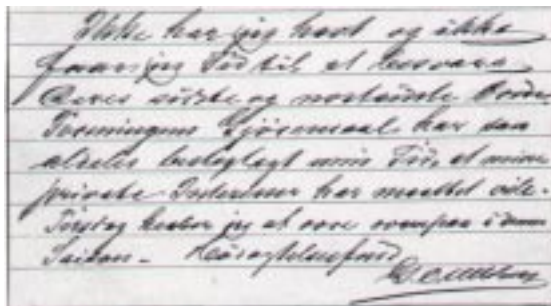 Ikke har jeg havt og ikke
faar jeg Tid til at besvare
Deres sidste og
Foreningens Gjöremaal har saa
aldeles beslaglagt min Tid, at mine
private Interesser har maattet vike.
Tirsdag haaber jeg at være ovenpaa i denne
Saison. Höiagtelsesfuld